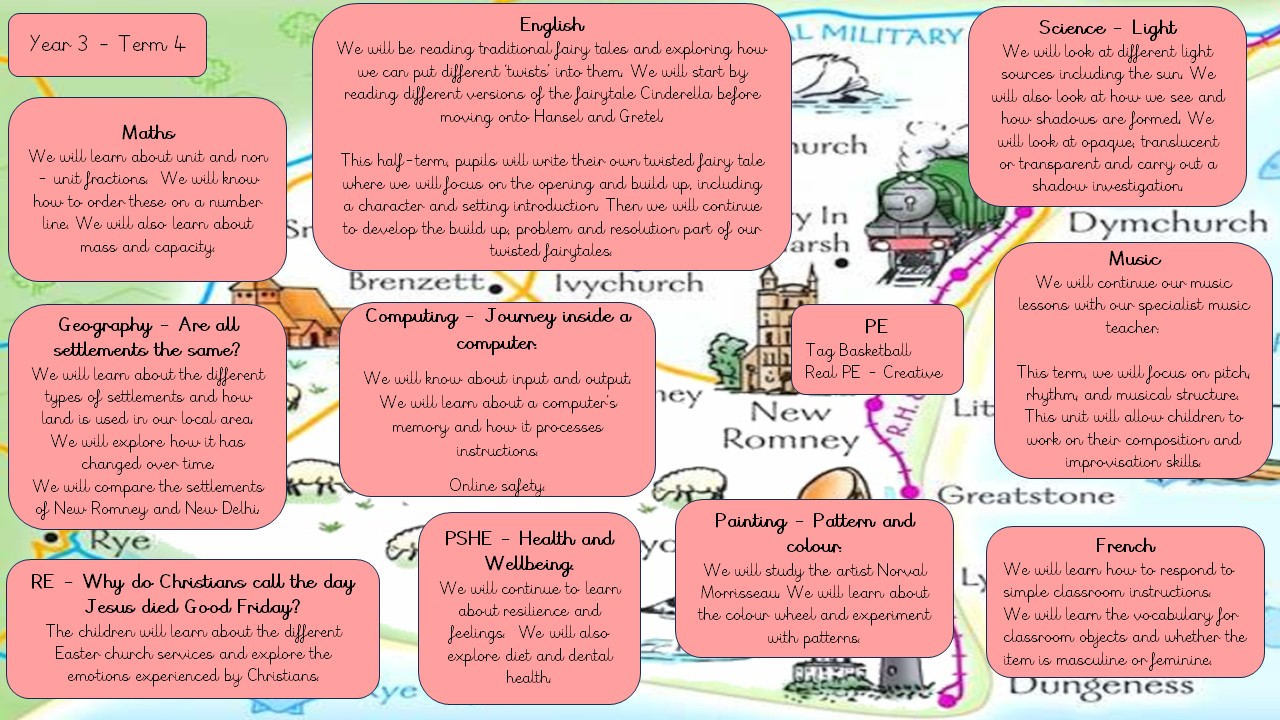 Year 3 - Term 4
Maths
We will learn about unit and non
- unit fractions. We will know
how to order these on a number
line. We will also learn about
mass and capacity.
English
We will be reading traditional fairy tales and exploring how
we can put different 'twists' into them. We will start by
reading different versions of the fairytale Cinderella before
moving onto Hansel and Gretel.
This half-term, pupils will write their own twisted fairy tale
where we will focus on the opening and build up, including
a character and setting introduction. Then we will continue
to develop the build up, problem and resolution part of our
twisted fairytales.
Science - Light
We will look at different light
sources including the sun. We
will also look at how we see and
how shadows are formed. We
will look at opaque, translucent
or transparent and carry out a
shadow investigation.
Geography - Are all
settlements the same?
We will learn about the different
types of settlements and how
land is used in our local area.
We will explore how it has
changed over time.
We will compare the settlements
of New Romney and New Delhi.
Computing - Journey inside a
computer.
We will know about input and output.
We will learn about a computer's
memory and how it processes
instructions.
Online safety.
PE
Tag Basketball
Real PE - Creative
Music
We will continue our music
lessons with our specialist music
teacher.
This term, we will focus on pitch,
rhythm, and musical structure.
This unit will allow children to
work on their composition and
improvisation skills.
RE - Why do Christians call the day
Jesus died Good Friday?
The children will learn about the different
Easter church services and explore the
emotions experienced by Christians.
PSHE - Health and
Wellbeing.
We will continue to learn
about resilience and
feelings. We will also
explore diet and dental
health.
Painting - Pattern and
colour.
We will study the artist Norval
Morrisseau. We will learn about
the colour wheel and experiment
with patterns.
French
We will learn how to respond to
simple classroom instructions.
We will learn the vocabulary for
classroom objects and whether the
item is masculine or feminine.
AL MILITARY
hurch
ry In
arsh
Dymchurch
Brenzett
Ivychurch
New
Romney
ney
R.H.
Lit
Greatstone
Rye
Ly
Rye
Dungeness